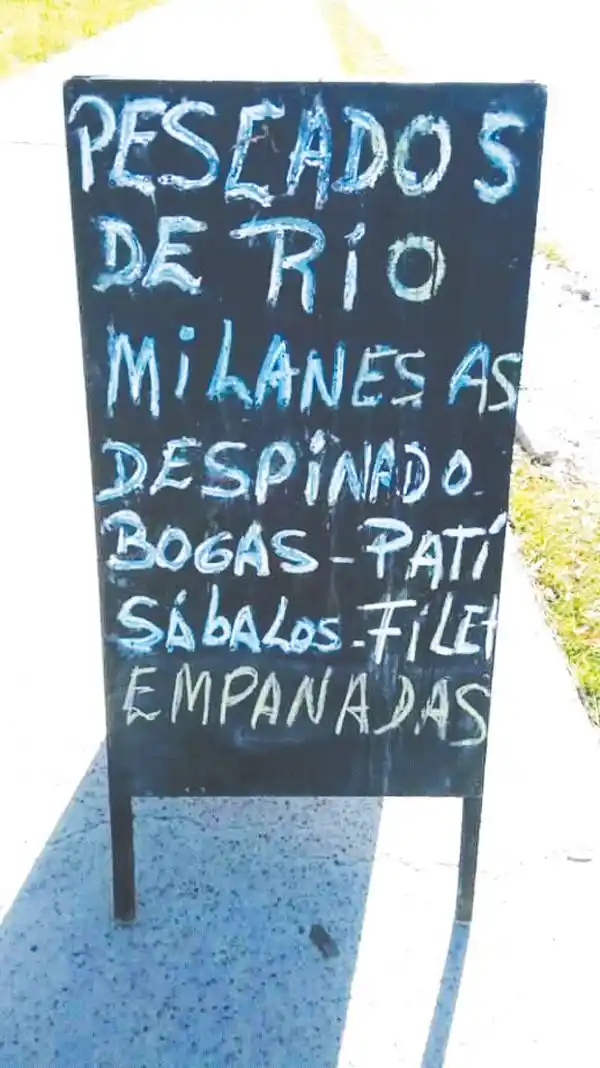 PESCADOS
DE RÍO
MiLANESAS
DESPiNADO
BOGAS - PATÍ
SÁbALOS - FiLEt
EMPANADAS